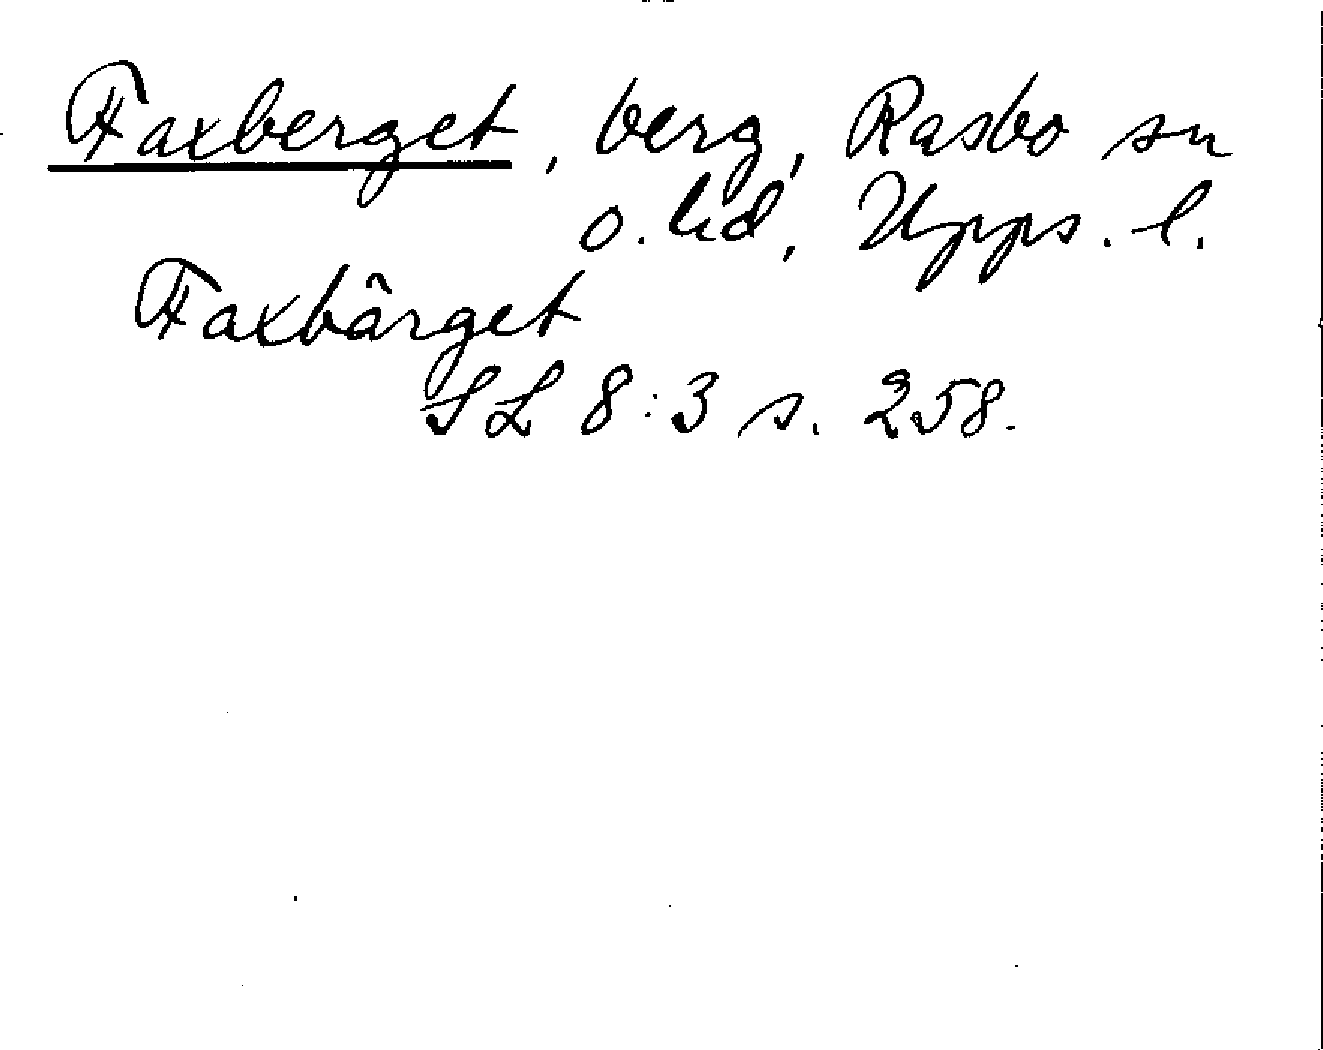 Faxberget, berg, Rasbo sn
o. hd, Upps. l.
Faxbärget
SL 8:3 s. 258.